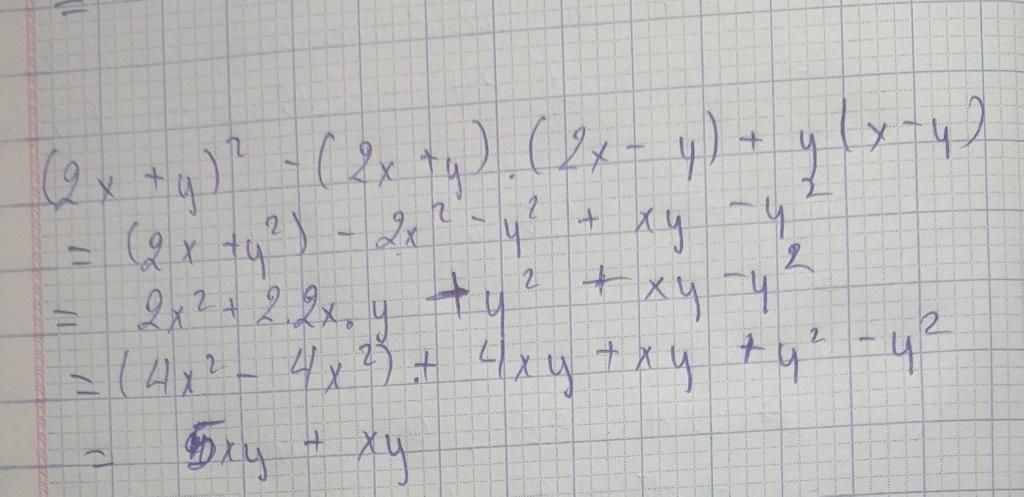 (2x + y)² - (2x + y) . (2x - y) + y(x - y)
= (2x + y²) - 2x² - y² + xy - y²
= 2x² + 2.2x.y + y² + xy - y²
= (4x² - 4x²) + 4xy + xy + y² - y²
= 5xy + xy